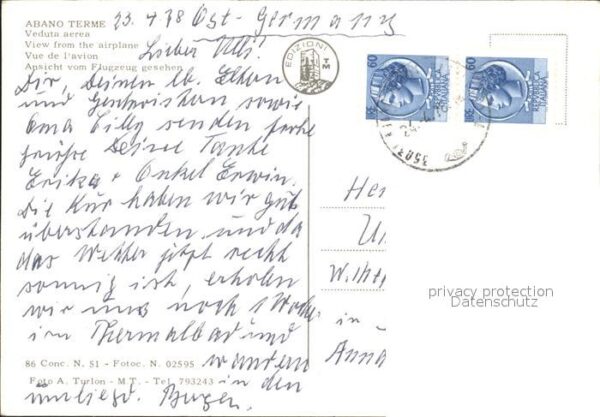 ABANO TERME
Veduta aerea
View from the airplane
Vue de l'avion
Ansicht vom Flugzeug gesehen
23. 4 78 Ost-Germany
Lieber Ulli!
Dir, Deinen lb. Eltern
und Geschwistern sowie
Oma Cilly senden frohe
Grüße Deine Tante
Erika + Onkel Erwin.
Die Kur haben wir gut
überstanden und da
das Wetter jetzt recht
sonnig ist, erholen
wir uns noch 1 Woche
im Thermalbad und
wandern
in den
umliegd. Bergen.
EDIZIONI
TM
60
60
3503
He
U
Wilhe
in
Anna
86 Conc. N. 51 - Fotoc. N. 02595
Foto A. Turlon - M.T. - Tel. 793243
privacy protection
Datenschutz